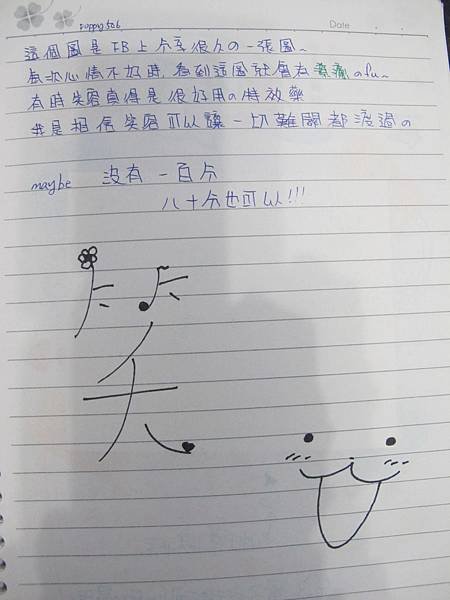 poppy506
Date
這個圖是FB上分享很久の一張圖~
每次心情不好時,看到這圖就會有療癒のfu~
有時笑容真得是很好用の特效藥
井是相信笑容可以讓一切難關都渡過。
maybe 沒有一百分
八十分也可以!!!
笑